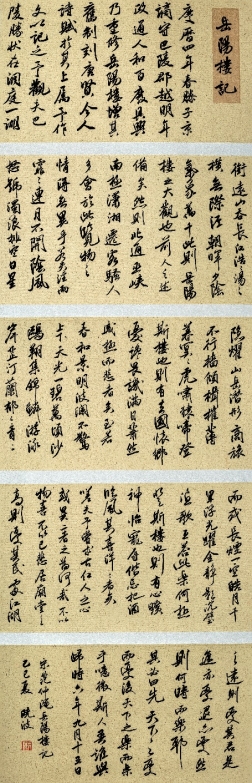 岳陽樓記
慶曆四年春滕子京
謫守巴陵郡越明年
政通人和百廢具興
乃重修岳陽樓增其
舊制刻唐賢今人
詩賦於其上屬予作
文以記之予觀夫巴
陵勝狀在洞庭一湖
銜遠山吞長江浩浩湯湯
橫無際涯朝暉夕陰
氣象萬千此則岳陽
樓之大觀也前人之述
備矣然則北通巫峽
南極瀟湘遷客騷人
多會於此覽物之
情得無異乎若夫淫雨
霏霏連月不開陰風
怒號濁浪排空日星
隱曜山岳潛形商旅
不行檣傾楫摧薄
暮冥冥虎嘯猿啼登
斯樓也則有去國懷鄉
憂讒畏譏滿目蕭然
感極而悲者矣至若
春和景明波瀾不驚
上下天光一碧萬頃沙
鷗翔集錦鱗游泳
岸芷汀蘭郁郁青青
而或長煙一空皓月千
里浮光耀金靜影沉璧
漁歌互答此樂何極
登斯樓也則有心曠
神怡寵辱偕忘把酒
臨風其喜洋洋者矣
嗟夫予嘗求古仁人之心
或異二者之為何哉不以
物喜不以己悲居廟堂之
高則憂其民處江湖
之遠則憂其君是
進亦憂退亦憂然
則何時而樂耶
其必曰先天下之憂
而憂後天下之樂而樂
乎噫微斯人吾誰與
歸時六年九月十五日
宋范仲淹岳陽樓記
己巳夏 曉波